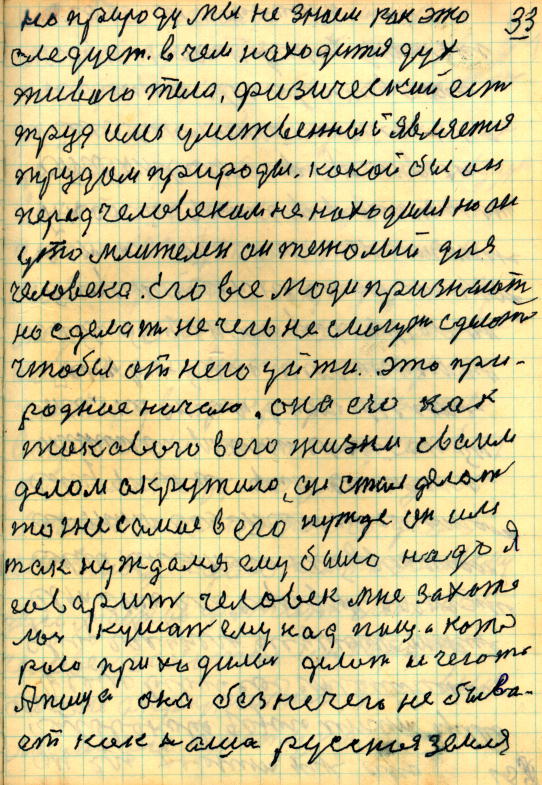 но природу мы не знаем как это 33
следует. в чем находится дух
живого тела, физический ест
труд иль умственный является
трудом природы. какой бы он
перед человеком не находился но он
утомлителен он тяжолый для
человека. Его все люди признают
но сделат нечего не смогут сделать
чтобы от него уйти. это при-
родное начало. она его как
такового в его жизни своим
делом окружило, он стал делат
тоже самое в его нужде он им
так нуждался ему было надо я
говарит человек мне захоте
лос кушат ему над пища кото
рою приходилос делат и чегото
А пища она без нечего не быва-
ет как наша русская земля